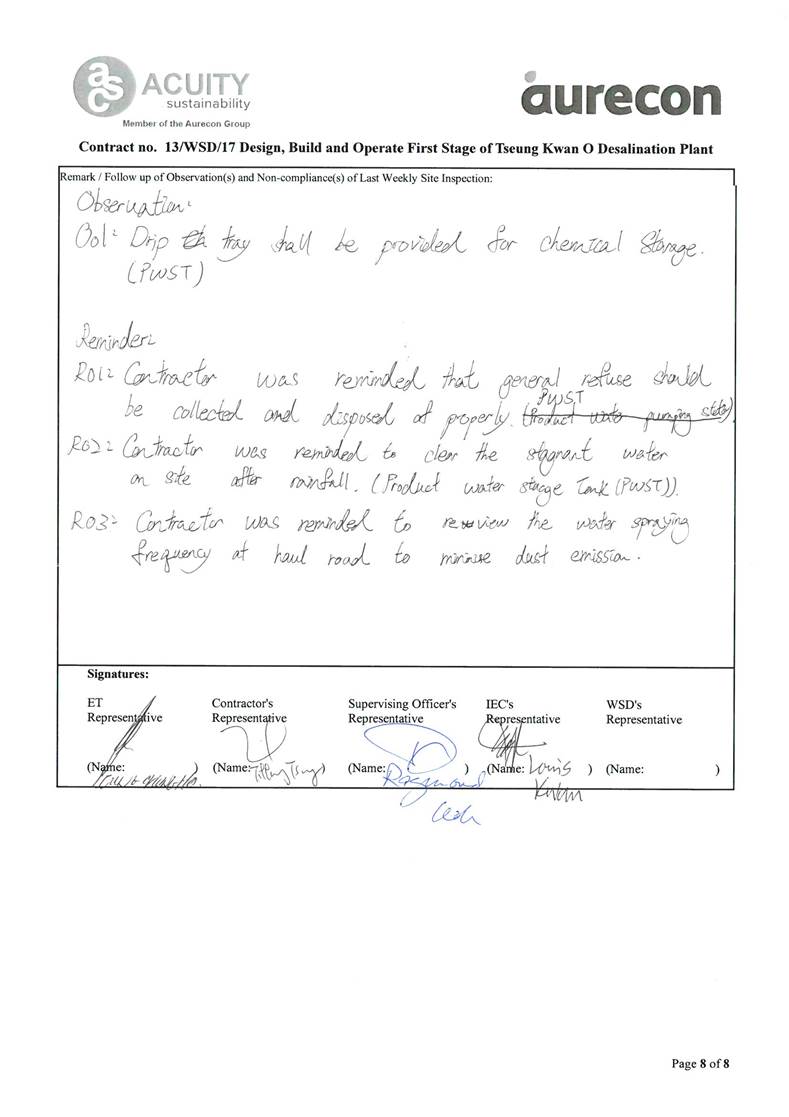 asc ACUITY
sustainability
Member of the Aurecon Group
aurecon
Contract no. 13/WSD/17 Design, Build and Operate First Stage of Tseung Kwan O Desalination Plant
Remark / Follow up of Observation(s) and Non-compliance(s) of Last Weekly Site Inspection:
Observation:
O01: Drip tray shall be provided for chemical storage.
(PWST)
Reminder:
R01: Contractor was reminded that general refuse should
PWST
be collected and disposed of properly. (Product water pumping station)
R02: Contractor was reminded to clear the stagnant water
on site after rainfall. (Product water storage Tank (PWST)).
R03: Contractor was reminded to review the water spraying
frequency at haul road to minimise dust emission.
Signatures:
ET Contractor's Supervising Officer's IEC's WSD's
Representative Representative Representative Representative Representative
(Name: ) (Name: Tiffany Tsang) (Name: Raymond ) (Name: Louis ) (Name: )
Kwan
Page 8 of 8